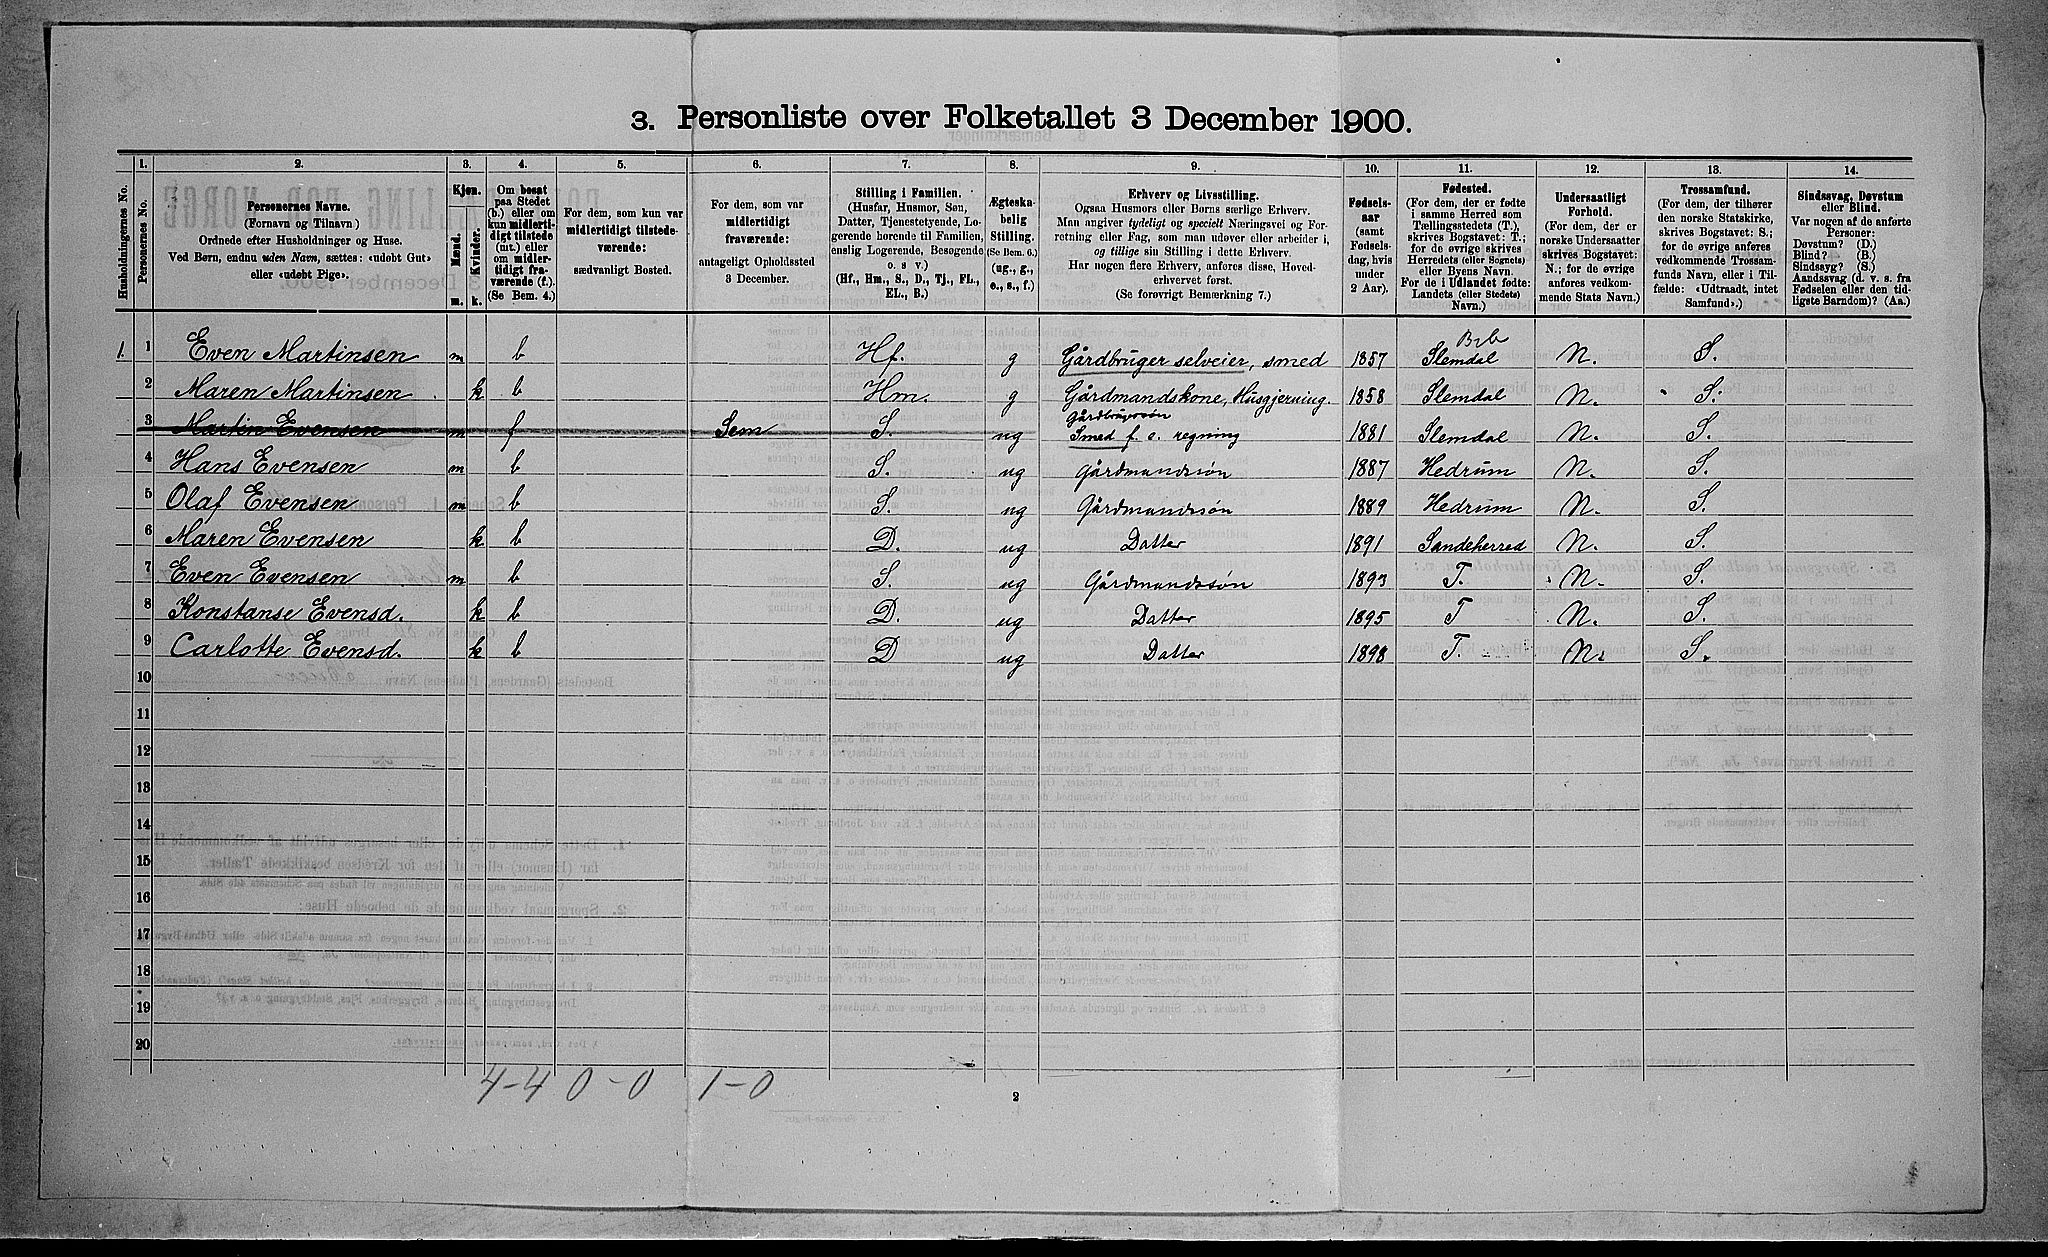 3. Personliste over Folketallet 3 December 1900.
1. 2. 3. 4. 5. 6. 7. 8. 9. 10. 11. 12. 13. 14.
Husholdningernes No.
Personernes No.
Personernes Navne.
(Fornavn og Tilnavn)
Ordnede efter Husholdninger og Huse.
Ved Børn, endnu uden Navn, sættes: «udøbt Gut»
eller «udøbt Pige».
Kjøn.
Mænd. Kvinder.
m. k.
Om bosat
paa Stedet
(b.) eller om
kun midlerti-
digt tilstede
(mt.) eller
om midler-
tidigt fra-
værende (f.).
(Se Bem. 4.)
For dem, som kun var
midlertidigt tilstede-
værende:
sædvanligt Bosted.
For dem, som var
midlertidigt
fraværende:
antageligt Opholdssted
3 December.
Stilling i Familien.
(Husfar, Husmor, Søn,
Datter, Tjenestetyende, Lo-
gerende hørende til Familien,
enslig Logerende, Besøgende
o. s v.)
(Hf., Hm., S., D., Tj., FL.,
EL., B.)
Ægteska-
belig
Stilling.
(Se Bem. 6.)
(ug., g.,
e., s., f.)
Erhverv og Livsstilling.
Ogsaa Husmors eller Børns særlige Erhverv.
Man angiver tydeligt og specielt Næringsvei og For-
retning eller Fag, som man udøver eller arbeider i,
og tillige sin Stilling i dette Erhverv.
Har nogen flere Erhverv, anføres disse, Hoved-
erhvervet først.
(Se forøvrigt Bemærkning 7.)
Fødsels-
aar
(samt
Fødsels-
dag, hvis
under
2 Aar).
Fødested.
(For dem, der er fødte
i samme Herred som
Tællingsstedets (T.),
skrives Bogstavet: T.;
for de øvrige skrives
Herredets (eller Sognets)
eller Byens Navn.
For de i Udlandet fødte:
Landets (eller Stedets)
Navn.)
Undersaatligt
Forhold.
(For dem, der er
norske Undersaatter
skrives Bogstavet:
N.; for de øvrige
anføres vedkom-
mende Stats Navn.)
Trossamfund.
(For dem, der tilhører
den norske Statskirke,
skrives Bogstavet: S.;
for de øvrige anføres
vedkommende Trossam-
funds Navn, eller i Til-
fælde: «Udtraadt, intet
Samfund».)
Sindssvag, Døvstum
eller Blind.
Var nogen af de anførte
Personer:
Døvstum? (D.)
Blind? (B.)
Sindssyg? (S.)
Aandssvag (d. v. s. fra
Fødselen eller den tid-
ligste Barndom)? (Aa.)
1. 1 Even Martinsen m b Hf. g Gårdbruger selveier, smed 1857 Slemdal N. S.
2 Maren Martinsen k b Hm. g Gårdmandskone, Husgjerning. 1858 Slemdal N. S.
Gårdbrugersøn
3 Martin Evensen m f Sem S. ug Smed f. e. regning 1881 Slemdal N. S.
4 Hans Evensen m b S. ug Gårdmandssøn 1887 Hedrum N. S.
5 Olaf Evensen m b S. ug Gårdmandssøn 1889 Hedrum N. S.
6 Maren Evensen k b D. ug Datter 1891 Sandeherred N. S.
7 Even Evensen m b S. ug Gårdmandssøn 1893 T. N. S.
8 Konstanse Evensd. k b D. ug Datter 1895 T N. S.
9 Carlotte Evensd. k b D ug Datter 1898 T. N. S.
10
11
12
13
14
15
16
17
18
19
20
4-4 0-0 1-0
2